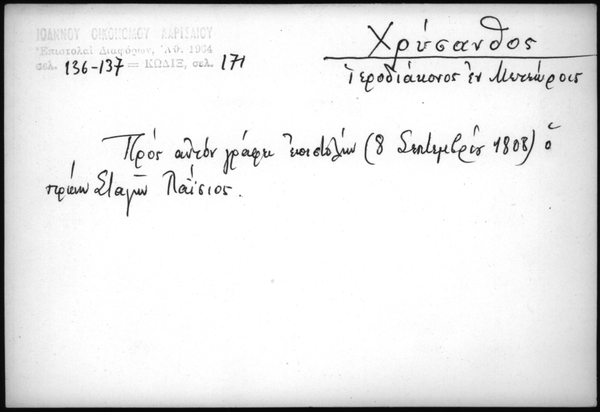 ΙΩΑΝΝΟΥ ΟΙΚΟΝΟΜΟΥ ΛΑΡΙΣΑΙΟΥ
Ἐπιστολαὶ Διαφόρων, Ἀθ. 1964
σελ. 136-137 = ΚΩΔΙΞ, σελ. 171
Χρύσανθος
Ἱεροδιάκονος ἐν Μετεώροις
Πρὸς αὐτὸν γράφει ἐπιστολὴν (8 Σεπτεμβρίου 1808) ὁ
πρώην Σταγῶν Παΐσιος.